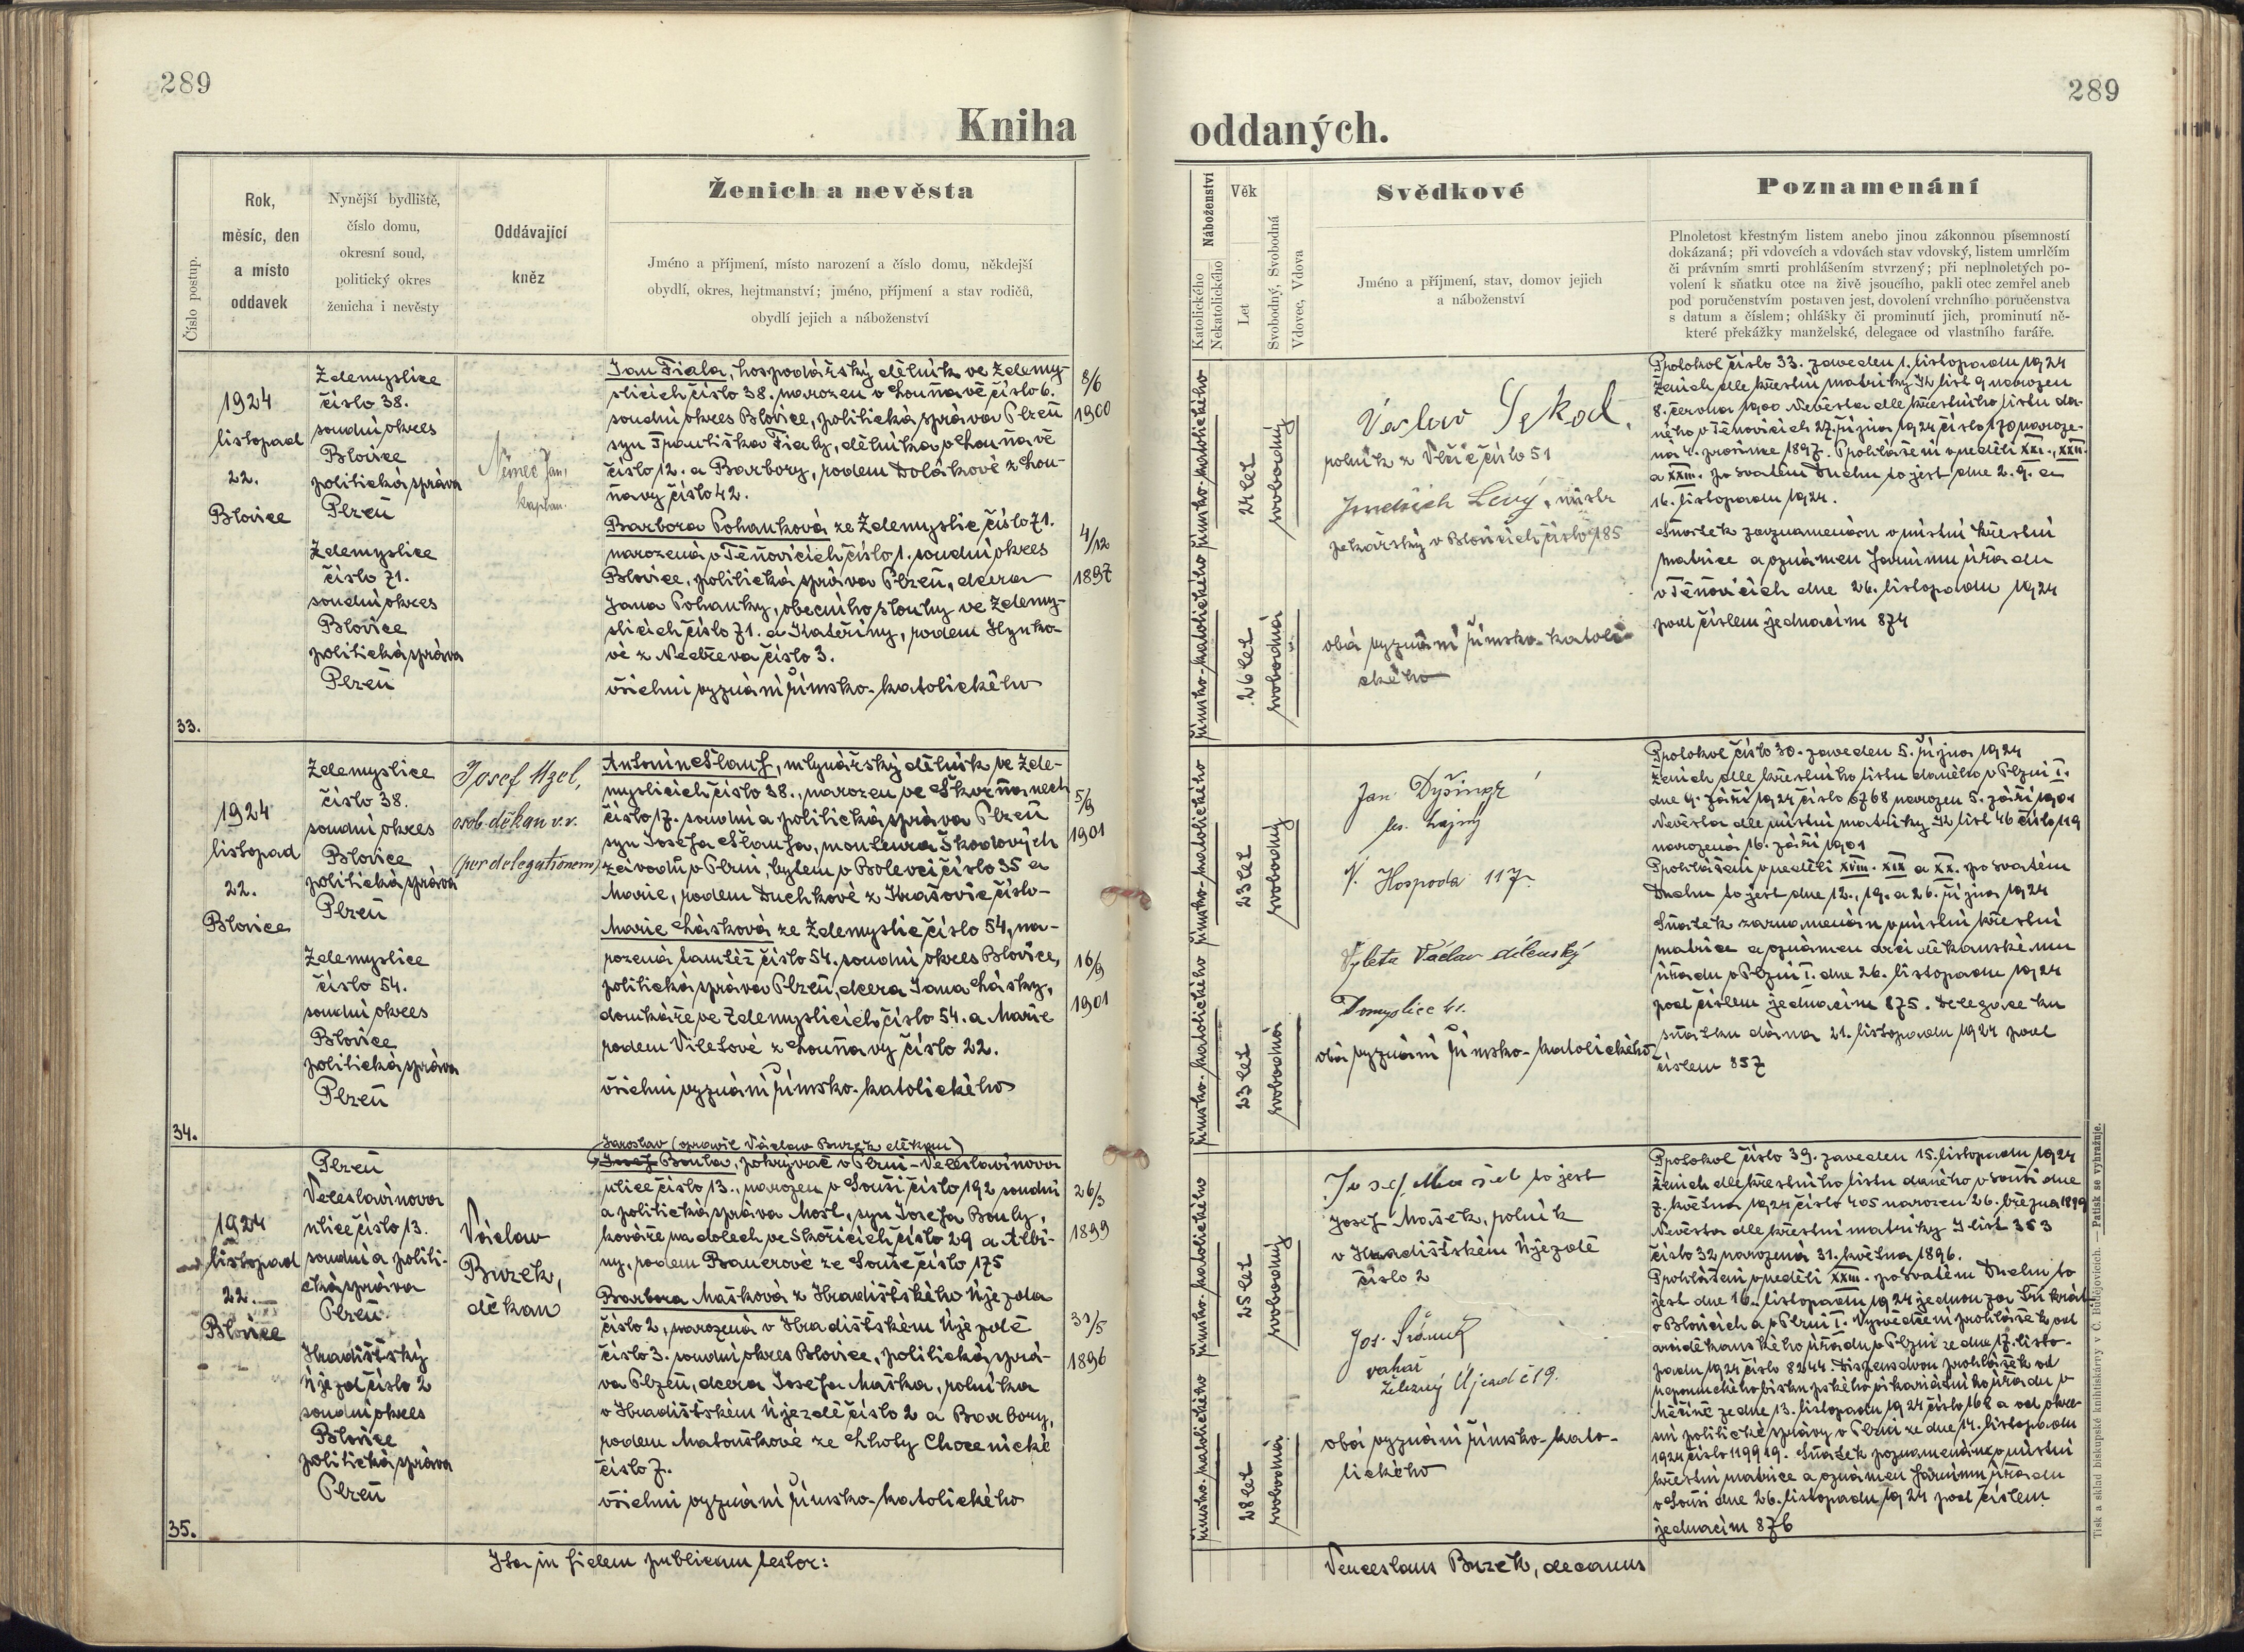 289
289
Kniha
oddaných.
Číslo postup.
Rok,
měsíc, den
a místo
oddavek
Nynější bydliště,
číslo domu,
okresní soud,
politický okres
ženicha i nevěsty
Oddávající
kněz
Ženich a nevěsta
Jméno a příjmení, místo narození a číslo domu, někdejší
obydlí, okres, hejtmanství; jméno, příjmení a stav rodičů,
obydlí jejich a náboženství
Náboženství
Katolického
Nekatolického
Věk
Let
Svobodný, Svobodná
Vdovec, Vdova
Svědkové
Jméno a příjmení, stav, domov jejich
a náboženství
Poznamenání
Plnoletost křestným listem anebo jinou zákonnou písemností
dokázaná; při vdovcích a vdovách stav vdovský, listem umrlčím
či právním smrti prohlášením stvrzený; při neplnoletých po-
volení k sňatku otce na živě jsoucího, pakli otec zemřel aneb
pod poručenstvím postaven jest, dovolení vrchního poručenstva
s datum a číslem; ohlášky či prominutí jich, prominutí ně-
které překážky manželské, delegace od vlastního faráře.
33.
1924
listopad
22.
Blovice
Ždemyslice
číslo 38.
soudní okres
Blovice
politická správa
Plzeň
Ždemyslice
číslo 71.
soudní okres
Blovice
politická správa
Plzeň
Němec Jan,
kaplan.
Jan Fiala, hospodářský dělník ve Ždemy-
slicích číslo 38. narozen v Louňavě číslo 6.
soudní okres Blovice, politická správa Plzeň
syn Františka Fialy, dělníka v Louňavě
číslo 12. a Barbory, rodem Dolákové z Lou-
ňavy číslo 42.
Barbora Pohanková ze Ždemyslic číslo 71.
narozená v Těňovicích číslo 1. soudní okres
Blovice, politická správa Plzeň, dcera
Jana Pohanky, obecního sluhy ve Ždemy-
slicích číslo 71. a Kateřiny, rodem Hynko-
vé z Neděeva číslo 3.
všichni vyznání římsko-katolického
8/6
1900
4/12
1897
římsko-katolického
římsko-katolického
24 let
26 let
svobodný
svobodná
Václav
rolník z Vlčic číslo 51
Jindřich Levý, mistr
pekařský v Blovicích číslo 185
obá vyznání římsko-katoli-
ckého
Protokol číslo 33. zaveden 1. listopadu 1924
Ženich dle křestní matriky K list 9 narozen
8. června 1900 Nevěsta dle křestního listu da-
ného v Těňovicích 27. října 1924 číslo 170 naroze-
ná 4. prosince 1897. Prohlášení v neděli XXI., XXII.
a XXIII. po svatém Duchu to jest dne 2. 9. a
16. listopadu 1924.
Sňatek zaznamenán v místní křestní
matrice a oznámen farnímu úřadu
v Těňovicích dne 26. listopadu 1924
pod číslem jednacím 874
34.
1924
listopad
22.
Blovice
Ždemyslice
číslo 38.
soudní okres
Blovice
politická správa
Plzeň
Ždemyslice
číslo 54.
soudní okres
Blovice
politická správa
Plzeň
Josef Uzel,
osob. děkan v.v.
(per delegationem)
Antonín Šlauf, mlynářský dělník ve Žde-
myslicích číslo 38., narozen ve Škvrňanech
číslo 17. soudní a politická správa Plzeň
syn Josefa Šlaufa, montéura Škodových
závodů v Plzni, bytem v Bolevci číslo 35 a
Marie, rodem Duchkové z Krašovic číslo-
Marie Lásková ze Ždemyslic číslo 54, na-
rozená tamtéž číslo 54. soudní okres Blovice,
politická správa Plzeň, dcera Jana Lásky,
domkáře ve Ždemyslicích číslo 54. a Marie
rodem Viletové z Louňavy číslo 22.
všichni vyznání římsko-katolického
5/9
1901
16/9
1901
římsko-katolického
římsko-katolického
23 let
23 let
svobodný
svobodná
Jan Dyšingr
les. hajný
V. Hospoda 117.
Vyleta Václav
obá vyznání římsko-katolického
Protokol číslo 30. zaveden 5. října 1924
Ženich dle křestního listu daného v Plzni I.
dne 9. září 1924 číslo 6768 narozen 5. září 1901
Nevěsta dle místní matriky K list 46 číslo 119
narozená 16. září 1901
Prohlášení v neděli XVIII. XIX a XX. po svatém
Duchu to jest dne 12., 19. a 26. října 1924
Sňatek zaznamenán v místní křestní
matrice a oznámen arciděkanskému
úřadu v Plzni I. dne 26. listopadu 1924
pod číslem jednacím 875. Delegace ku
sňatku dána 21. listopadu 1924 pod
číslem 857
35.
1924
listopad
22.
Blovice
Plzeň
Veleslavínova
ulice číslo 13.
soudní a politi-
cká správa
Plzeň
Hradišťský
Újezd číslo 2
soudní okres
Blovice
politická správa
Plzeň
Václav
Buzek,
děkan
Jaroslav (opravil Václav Buzek děkan)
Josef Boula, pokrývač v Plzni-Veleslavínova
ulice číslo 13., narozen v Souši číslo 192 soudní
a politická správa Most, syn Josefa Bouly,
kováře na dolech ve Skořicích číslo 29 a Albi-
ny, rodem Bauerové ze Souše číslo 175
Barbora Mašková z Hradišťského Újezda
číslo 2, narozená v Hradišťském Újezdě
číslo 3. soudní okres Blovice, politická sprá-
va Plzeň, dcera Josefa Maška, rolníka
v Hradišťském Újezdě číslo 2 a Barbory,
rodem Matouškové ze Lhoty Chocenické
číslo 7.
všichni vyznání římsko-katolického
26/3
1899
31/5
1896
římsko-katolického
římsko-katolického
25 let
28 let
svobodný
svobodná
Josef Mašek to jest
Josef Mašek, rolník
v Hradišťském Újezdě
číslo 2
Jos. Šrámek
vahař
Železný Újezd č 19.
obá vyznání římsko-kato-
lického
Protokol číslo 39. zaveden 15. listopadu 1924
Ženich dle křestního listu daného v Souši dne
7. května 1924 číslo 405 narozen 26. března 1899
Nevěsta dle křestní matriky I list 353
číslo 32 narozená 31. května 1896.
Prohlášení v neděli XXIII. po Svatém Duchu to
jest dne 16. listopadu 1924 jednou za tři krát
v Blovicích a v Plzni I. Vysvědčení prohlášek od
arciděkanského úřadu v Plzni ze dne 17. listo-
padu 1924 číslo 8244. Dispens dvou prohlášek od
nepomuckého biskupského vikariátního úřadu v
Měčíně ze dne 13. listopadu 1924 číslo 168 a od okre-
sní politické správy v Plzni ze dne 14. listopadu
1924 číslo 119919. Sňatek poznamenán v místní
křestní matrice a oznámen farnímu úřadu
v Souši dne 26. listopadu 1924 pod číslem
jednacím 876
Ita in fidem publicam testor:
Venceslaus Buzek, decanus
Tisk a sklad biskupské knihtiskárny v Č. Budějovicích. — Patisk se vyhražuje.